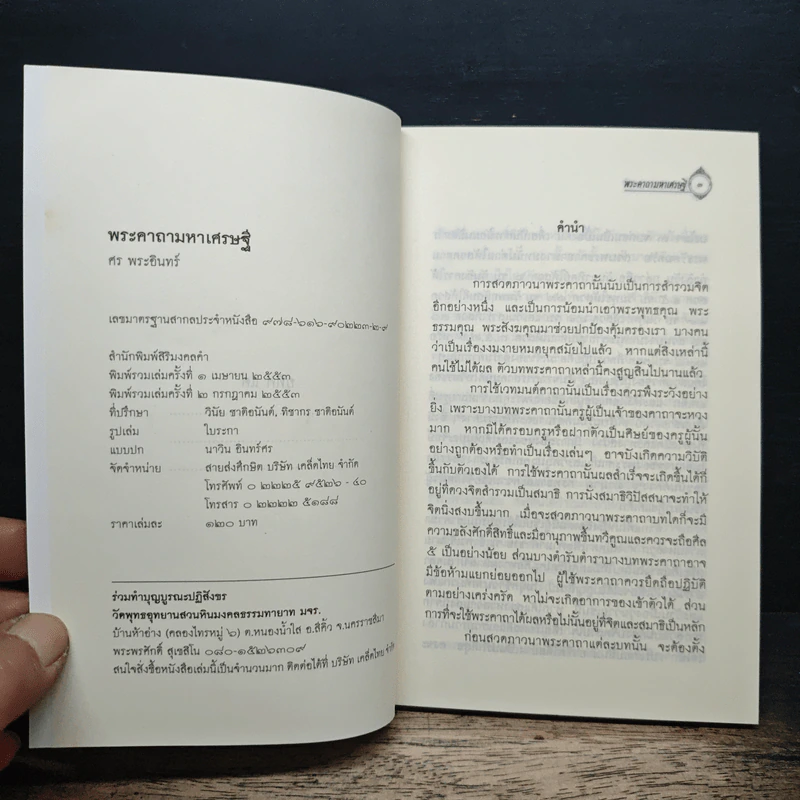 พระคาถามหาเศรษฐี
ศร พระอินทร์
เลขมาตรฐานสากลประจำหนังสือ ๙๗๘-๖๑๖-๙๐๒๒๓-๒-๙
สำนักพิมพ์สิริมงคลคำ
พิมพ์รวมเล่มครั้งที่ ๑ เมษายน ๒๕๕๓
พิมพ์รวมเล่มครั้งที่ ๒ กรกฎาคม ๒๕๕๓
ที่ปรึกษา วินัย ชาติอนันต์, ทิชากร ชาติอนันต์
รูปเล่ม ใบระกา
แบบปก นาวิน อินทร์ศร
จัดจำหน่าย สายส่งศึกษิต บริษัท เคล็ดไทย จำกัด
โทรศัพท์ ๐ ๒๒๒๕ ๙๕๒๖ - ๔๐
โทรสาร ๐ ๒๒๒๒ ๕๑๘๘
ราคาเล่มละ ๑๒๐ บาท
ร่วมทำบุญบูรณะปฏิสังขร
วัดพุทธอุทยานสวนหินมงคลธรรมทายาท มจร.
บ้านห้วยอ่าง (คลองไทรหมู่ ๖) ต.หนองน้ำใส อ.สีคิ้ว จ.นครราชสีมา
พระพรศักดิ์ สุเขสิโน ๐๘๐-๑๕๒๖๓๐๙
สนใจสั่งซื้อหนังสือเล่มนี้เป็นจำนวนมาก ติดต่อได้ที่ บริษัท เคล็ดไทย จำกัด
พระคาถามหาเศรษฐี ๓
คำนำ
การสวดภาวนาพระคาถานั้นนับเป็นการสำรวมจิต
อีกอย่างหนึ่ง และเป็นการน้อมนำเอาพระพุทธคุณ พระ
ธรรมคุณ พระสังฆคุณมาช่วยปกป้องคุ้มครองเรา บางคน
ว่าเป็นเรื่องงมงายหมดยุคสมัยไปแล้ว หากแต่สิ่งเหล่านี้
คนใช้ไม่ได้ผล ตัวบทพระคาถาเหล่านี้คงสูญสิ้นไปนานแล้ว
การใช้เวทมนต์คาถานั้นเป็นเรื่องควรพึงระวังอย่าง
ยิ่ง เพราะบางบทพระคาถานั้นครูผู้เป็นเจ้าของคาถาจะหวง
มาก หากมิได้ครอบครูหรือฝากตัวเป็นศิษย์ของครูผู้นั้น
อย่างถูกต้องหรือทำเป็นเรื่องเล่นๆ อาจบังเกิดความวิบัติ
ขึ้นกับตัวเองได้ การใช้พระคาถานั้นผลสำเร็จจะเกิดขึ้นได้ก็
อยู่ที่ดวงจิตสำรวมเป็นสมาธิ การนั่งสมาธิวิปัสสนาจะทำให้
จิตนิ่งสงบขึ้นมาก เมื่อจะสวดภาวนาพระคาถาบทใดก็จะมี
ความขลังศักดิ์สิทธิ์และมีอานุภาพขึ้นทวีคูณและควรจะถือศีล
๕ เป็นอย่างน้อย ส่วนบางตำรับตำราบางบทพระคาถาอาจ
มีข้อห้ามแยกย่อยออกไป ผู้ใช้พระคาถาควรยึดถือปฏิบัติ
ตามอย่างเคร่งครัด หาไม่จะเกิดอาการของเข้าตัวได้ ส่วน
การที่จะใช้พระคาถาได้ผลหรือไม่นั้นอยู่ที่จิตและสมาธิเป็นหลัก
ก่อนสวดภาวนาพระคาถาแต่ละบทนั้น จะต้องตั้ง